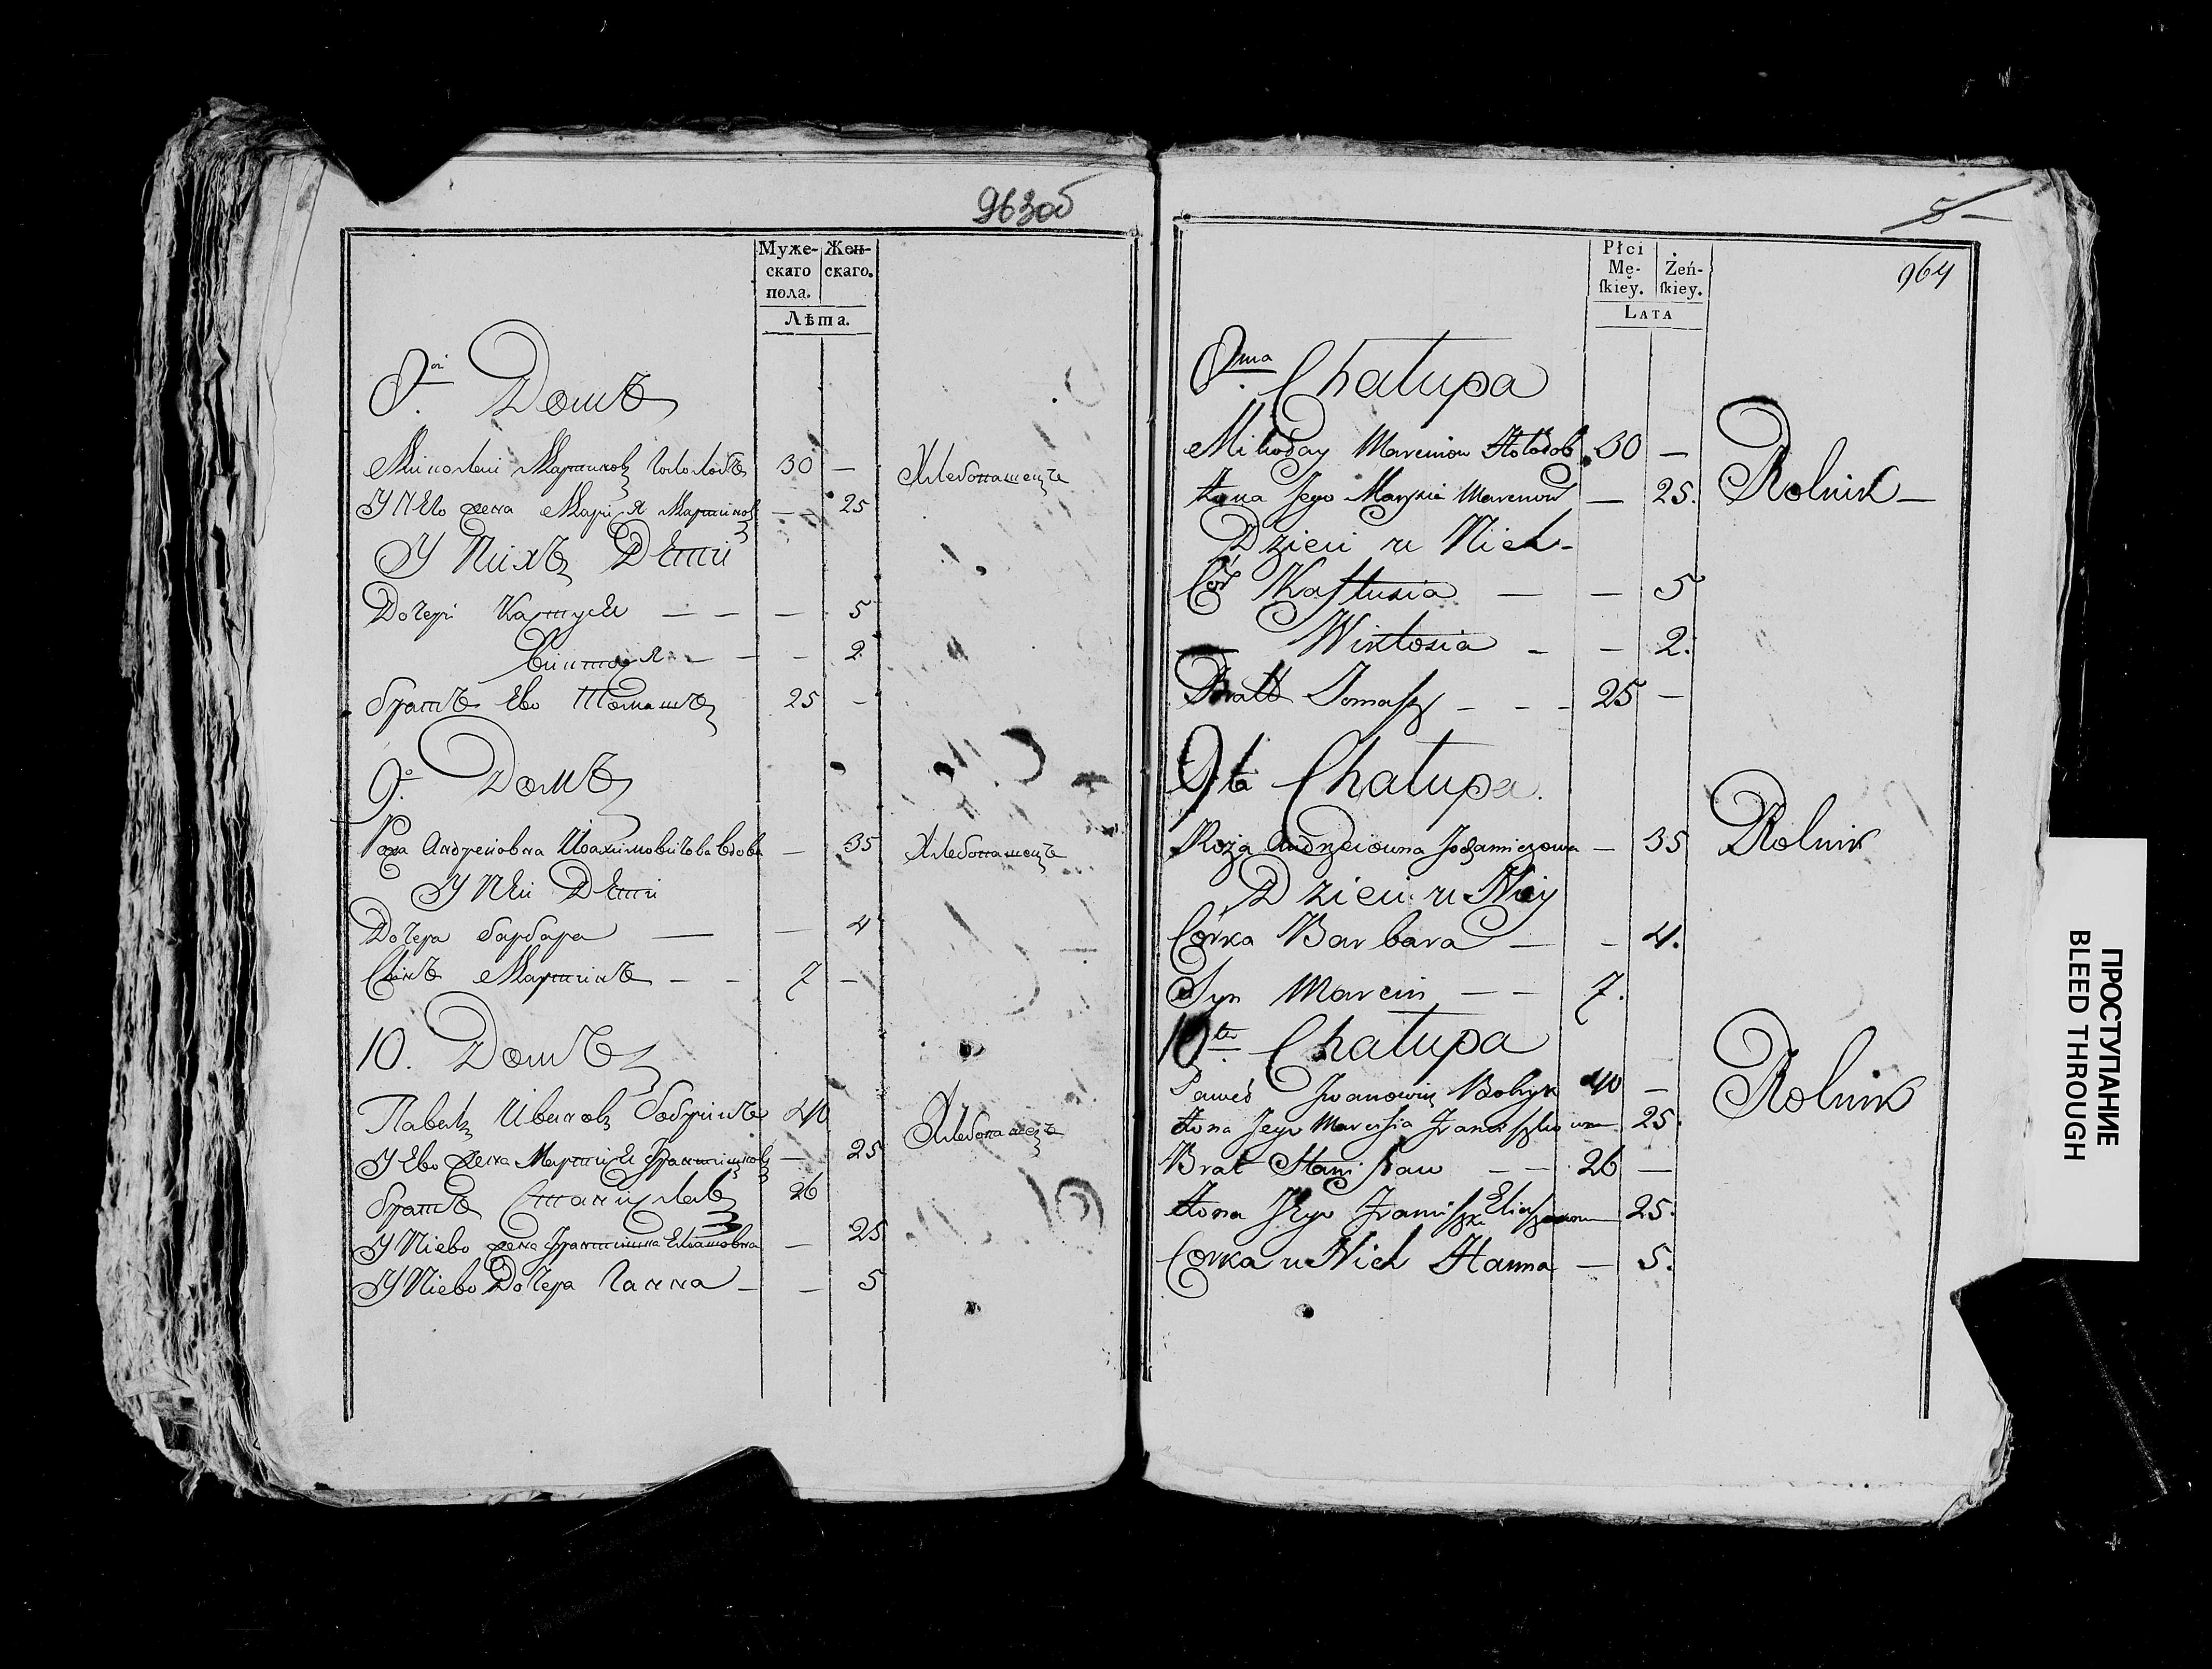 963об
Муже- Жен-
скаго скаго.
пола.
Лѣта.
8ой Домъ
Миколай Мартиновъ Голодобъ 30 — Хлебопашецъ
У Него жена Мария Мартинов — 25
У Нихъ Дети
Дочери Кастуся — — — 5
Виктося — — — 2
братъ Ево Томашъ 25 —
9о Домъ
Рожа Андреиовна Иоахимовичова вдова — 35 Хлебопашецъ
У Неи Дети
Дочера барбара — — 4
Синъ Мартинъ — — 7 —
10. Домъ
Павелъ Ивановъ Бобрикъ 40 Хлебопашецъ
У Ево жена Мартися Францишков — 25
братъ Станиславъ 26
У Нiево жена Францишка Елiашовна — 25
У Нiево Дочера Ганна — — 5
5 —
964
Płci
Mę- Żeń-
skiey. skiey.
LATA
8ma Chałupa
Mikołay Marcinow Hołodob 30 — Rolnik —
Żona Jego Marysia Marcinow — 25.
Dzieci u Nich -
Cór Kastusia — — 5
— Wiktosia - — 2.
Bratt Tomasz - - - 25 —
9ta Chałupa.
Roża Andrzeiowna — 35 Rolnik
Dzieci u Niey
Córka Barbara — - 4.
Syn Marcin — — 7.
10ta Chałupa
Paweł Iwanowicz Bobryk 40 — Rolnik
Żona Jego Marcisia Franciszkowna 25.
Brat Stanisław — — 26 —
Żona Jego Franciszka Eliaszowna 25.
Corka u Nich Hanna — 5.
ПРОСТУПАНИЕ
BLEED THROUGH